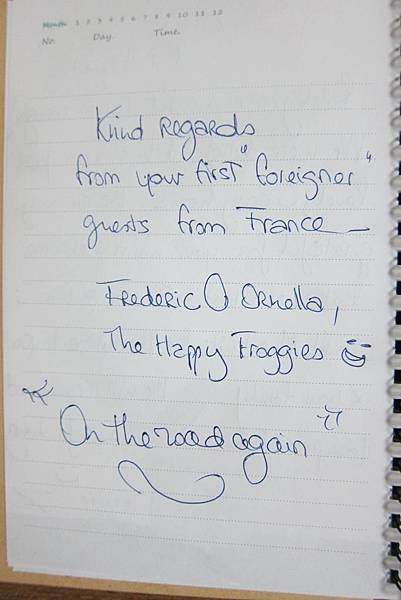 Month 1 2 3 4 5 6 7 8 9 10 11 12
No. Day. Time.
Kiind Regards
from your first "foreigner"
guests from France
FREDERIC Ornella,
The Happy Froggies
"On the road again"